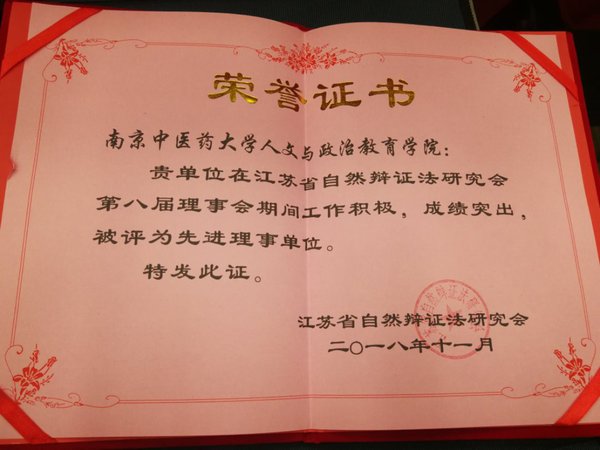 荣誉证书
南京中医药大学人文与政治教育学院：
贵单位在江苏省自然辩证法研究会
第八届理事会期间工作积极，成绩突出，
被评为先进理事单位。
特发此证。
江苏省自然辩证法研究会
二〇一八年十一月